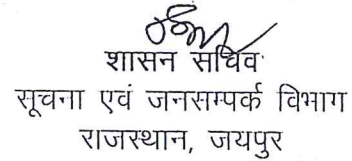 शासन सचिव
सूचना एवं जनसम्पर्क विभाग
राजस्थान, जयपुर